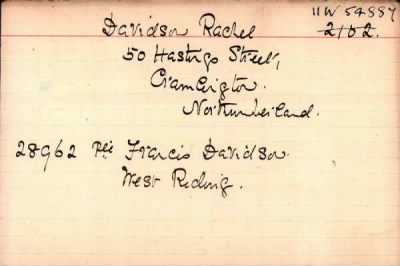 Davidson Rachel 11W 54887
2102.
50 Hastings Street,
Cramlington.
Northumberland.
28962 Pte Francis Davidson.
West Riding.